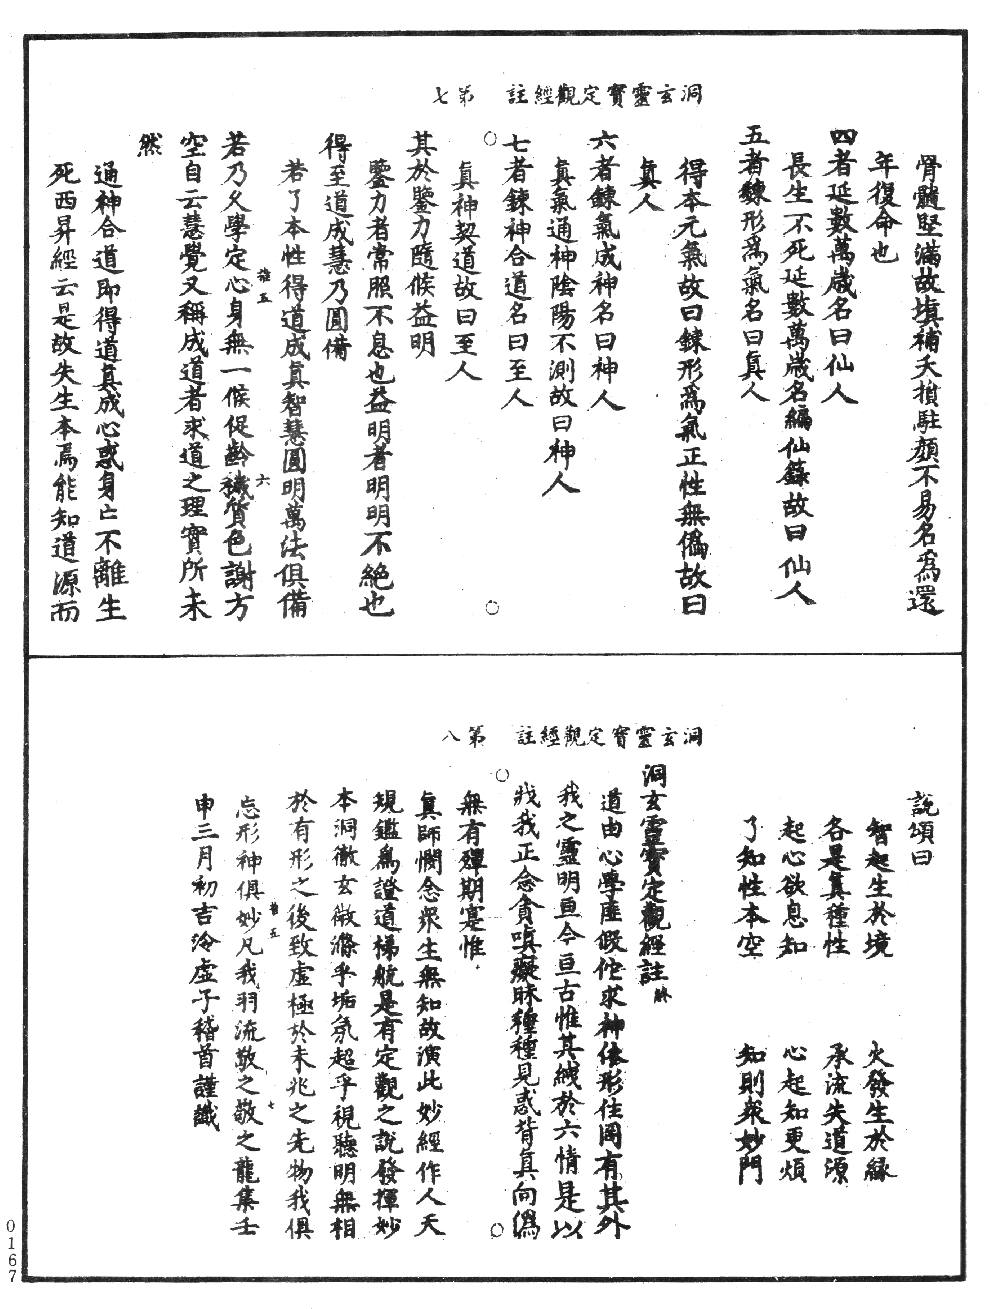 洞玄靈寶定觀經註　第七
骨髓堅滿故填補夭損駐顏不易名爲還
年復命也
四者延數萬歲名曰仙人
長生不死延數萬歲名編仙籙故曰仙人
五者鍊形爲氣名曰真人
得本元氣故曰鍊形爲氣正性無僞故曰
真人
六者鍊氣成神名曰神人
真氣通神陰陽不測故曰神人
七者鍊神合道名曰至人
真神契道故曰至人
其於鑒力隨候益明
鑒力者常照不息也益明者明明不絕也
得至道成慧乃圓備
若了本性得道成真智慧圓明萬法俱備
若乃久學定心身無一候促齡穢質色謝方
空自云慧覺又稱成道者求道之理實所未
然
通神合道即得道真成心惑身亡不離生
死西昇經云是故失生本焉能知道源而
五
六
洞玄靈寶定觀經註　第八
說頌曰
智起生於境　火發生於緣
各是真種性　承流失道源
起心欲息知　心起知更煩
了知性本空　知則衆妙門
洞玄靈寶定觀經註
道由心學匪假佗求神依形住罔有其外
我之靈明亘今亘古惟其綫於六情是以
戕我正念貪嗔癡昧種種見惑背真向僞
無有殫期寔惟
真師憫念衆生無知故演此妙經作人天
規鑑爲證道梯航是有定觀之說發揮妙
本洞徹玄微滌乎垢氛超乎視聽明無相
於有形之後致虛極於未兆之先物我俱
忘形神俱妙凡我羽流敬之敬之龍集壬
申三月初吉泠虛子稽首謹識
五
七
0167